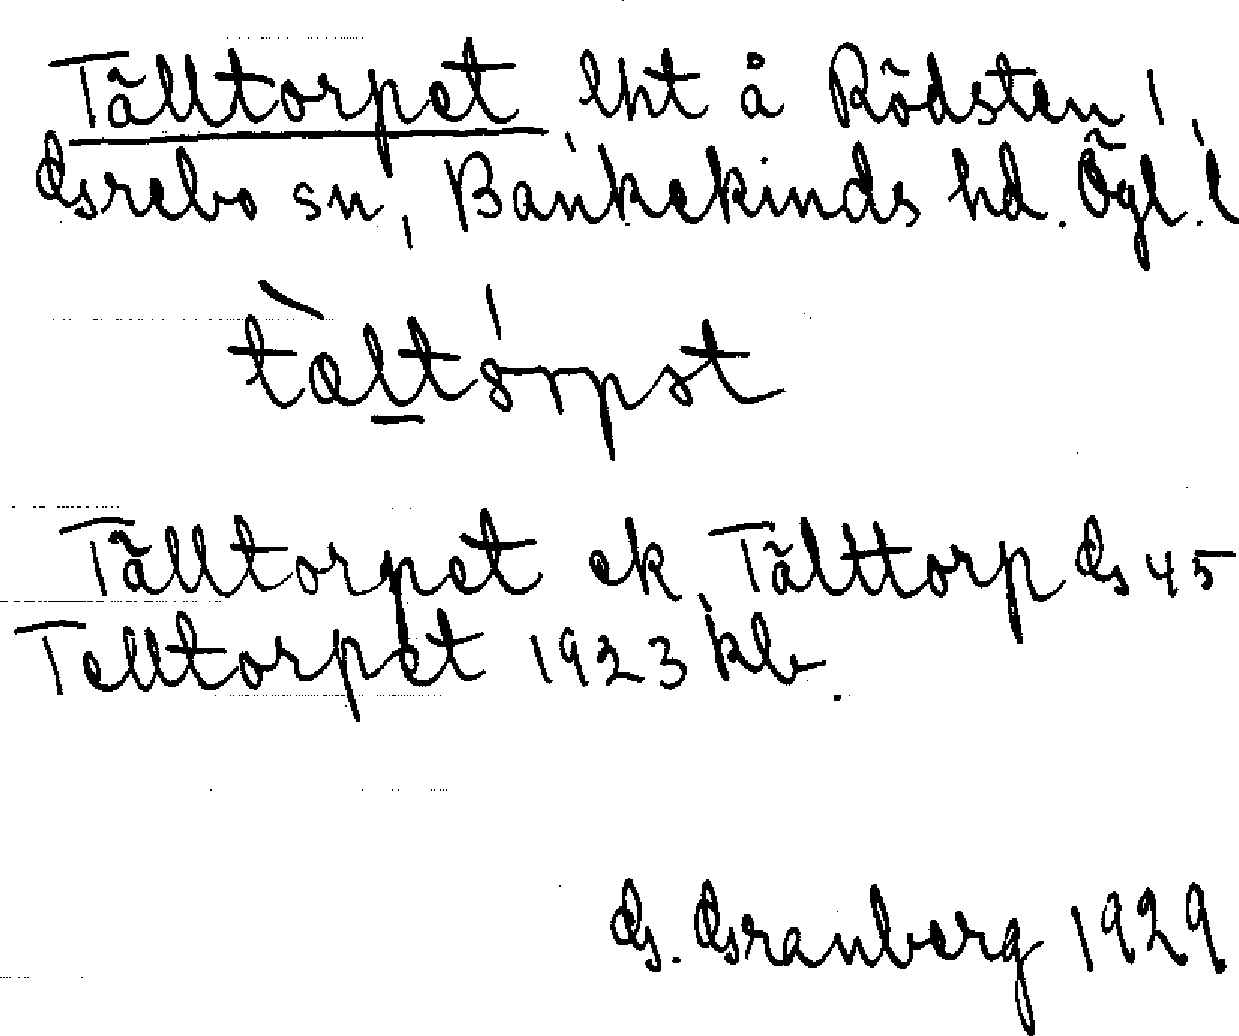 Tälltorpet lht å Rödsten,
Grebo sn, Bankekinds hd. Ögl. l
tàltórpət
Tälltorpet ek, Tälttorp Gs 45
Telltorpet 1923 kb.
G. Granberg 1929